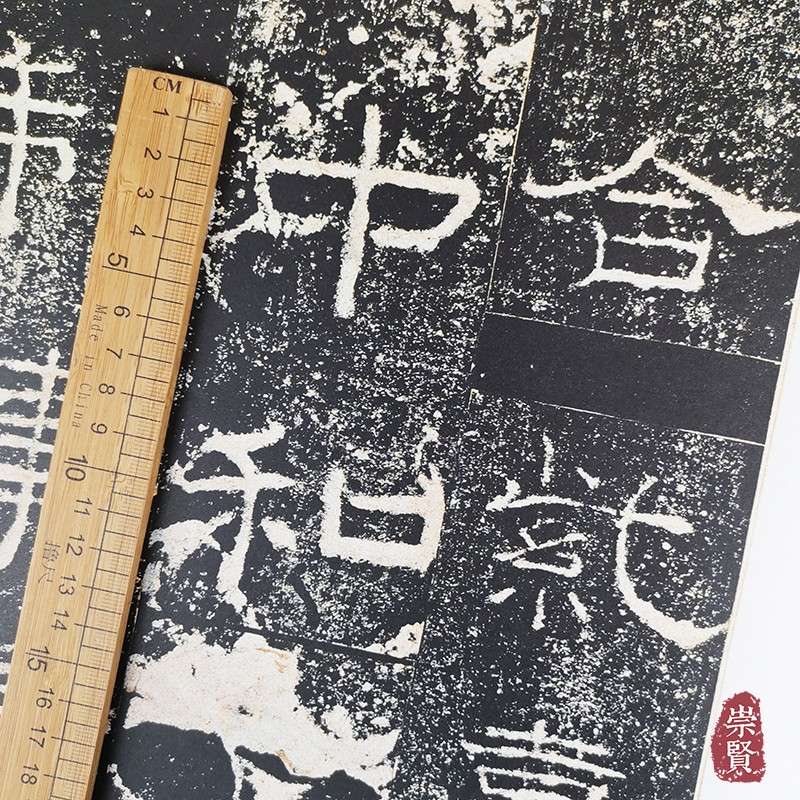 合
就
中
和
CM
1 2 3 4 5 6 7 8 9 10 11 12 13 14 15 16 17 18
Made in China
崇賢